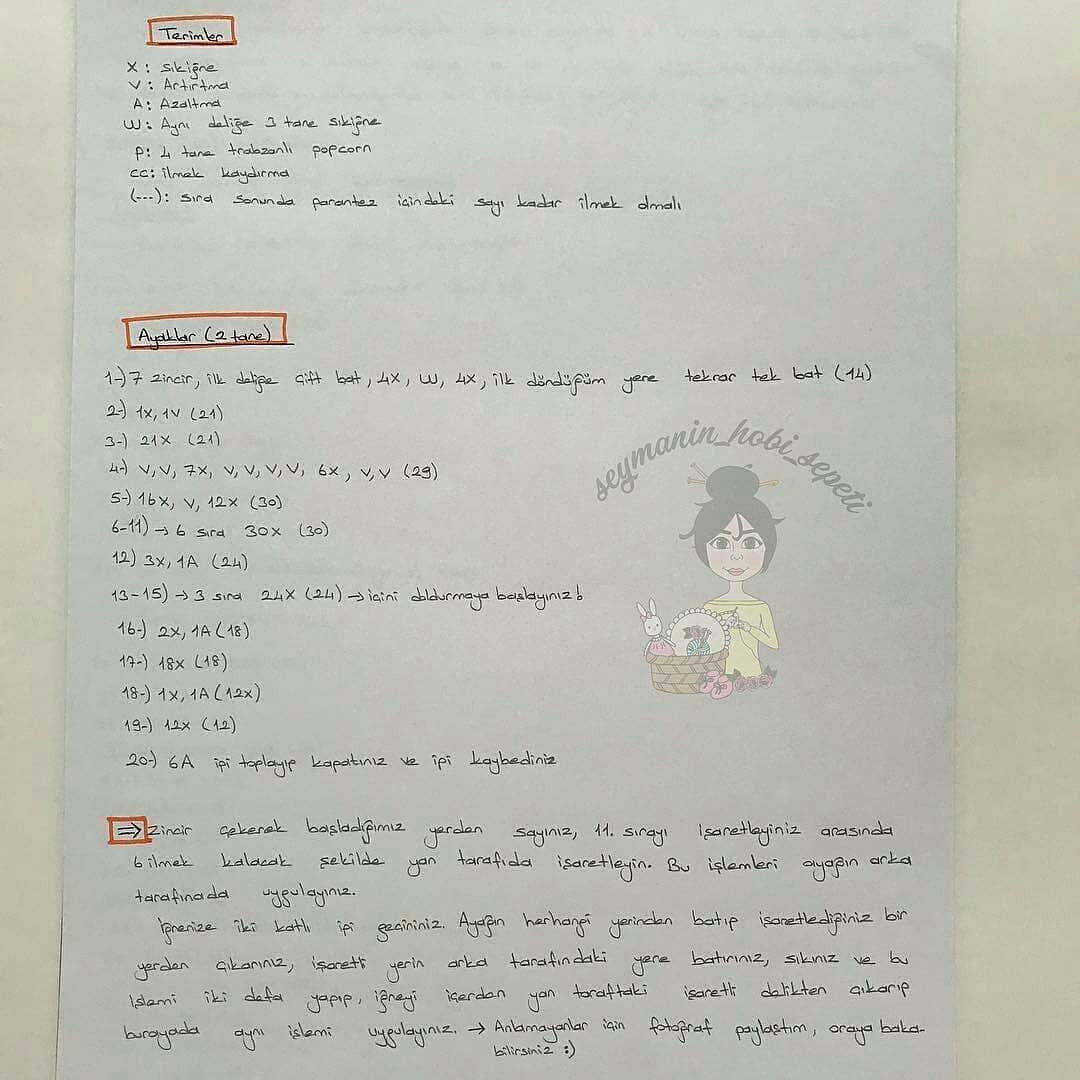 Terimler
X : sıkiğne
V : Artırtma
A : Azaltma
W : Aynı deliğe 3 tane sıkiğne
P : 4 tane trabzanlı popcorn
CC : ilmek kaydırma
(---) : sıra sonunda parantez içindeki sayı kadar ilmek olmalı
Ayaklar (2 tane)
1-) 7 zincir, ilk deliğe çift bat, 4X, W, 4X, ilk döndüğüm yere tekrar tek bat (14)
2-) 1X, 1V (21)
3-) 21X (21)
4-) V, V, 7X, V, V, V, V, 6X, V, V (29)
5-) 16X, V, 12X (30)
6-11) → 6 sıra 30X (30)
12) 3X, 1A (24)
13-15) → 3 sıra 24X (24) → içini doldurmaya başlayınız!
16-) 2X, 1A (18)
17-) 18X (18)
18-) 1X, 1A (12X)
19-) 12X (12)
20-) 6A ipi toplayıp kapatınız ve ipi kaybediniz
seymanin_hobi_sepeti
⇒ Zincir çekerek başladığımız yerden sayınız, 11. sırayı işaretleyiniz arasında
6 ilmek kalacak şekilde yan tarafıda işaretleyin. Bu işlemleri ayağın arka
tarafınada uygulayınız.
İğnenize iki katlı ipi geçiriniz. Ayağın herhangi yerinden batıp işaretlediğiniz bir
yerden çıkarınız, işaretli yerin arka tarafındaki yere batırınız, sıkınız ve bu
işlemi iki defa yapıp, iğneyi içerden yan taraftaki işaretli delikten çıkarıp
burayada aynı işlemi uygulayınız. → Anlamayanlar için fotoğraf paylaştım, oraya baka-
bilirsiniz :)